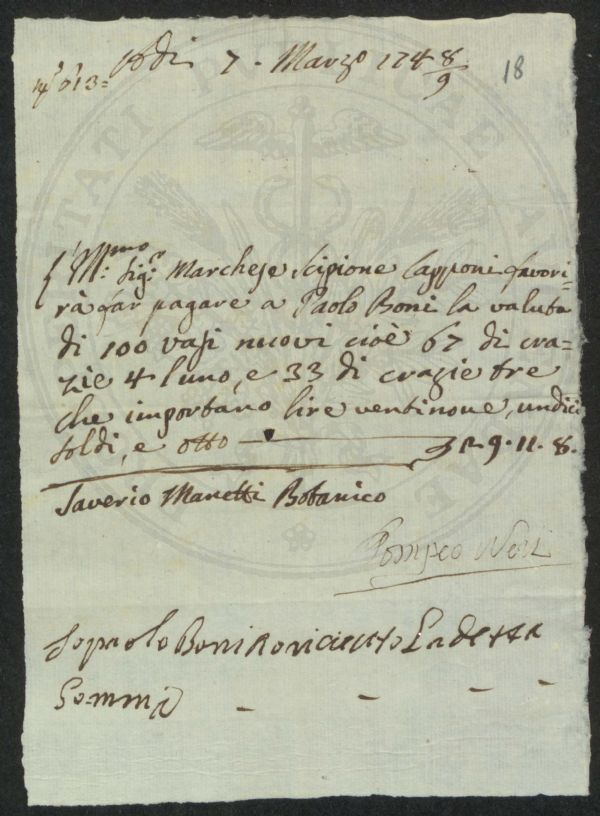 Adì 7 - Marzo 1748/9
18
N.° 613=
Ill.mo Sig.r Marchese Scipione Capponi favori-
rà far pagare a Paolo Boni la valuta
di 100 vasi nuovi cioè 67 di cra-
zie 4 l'uno, e 33 di crazie tre
che importano lire ventinove, undici
soldi, e otto — 29.11.8.
Saverio Manetti Botanico
Pompeo Neri
Io paolo Boni o ricieuto La detta
Somma - - - -